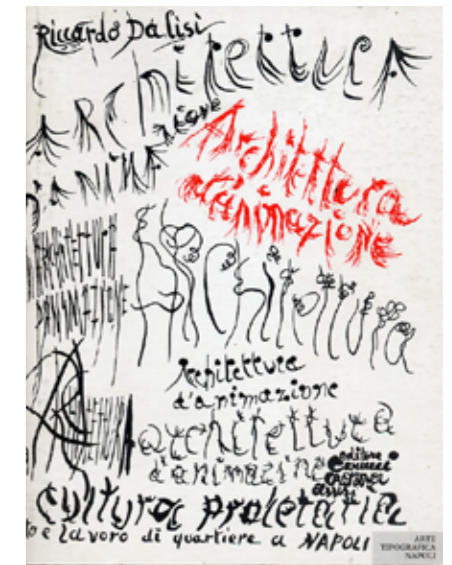 Riccardo Dalisi
Architettura
d'animazione
Architettura
d'animazione
ARCHITETTURA
D'ANIMAZIONE
Architettura
Architettura
d'animazione
ARCHITETTURA
architettura
d'animazione
cultura proletaria
e lavoro di quartiere a NAPOLI
ARTE
TIPOGRAFICA
NAPOLI